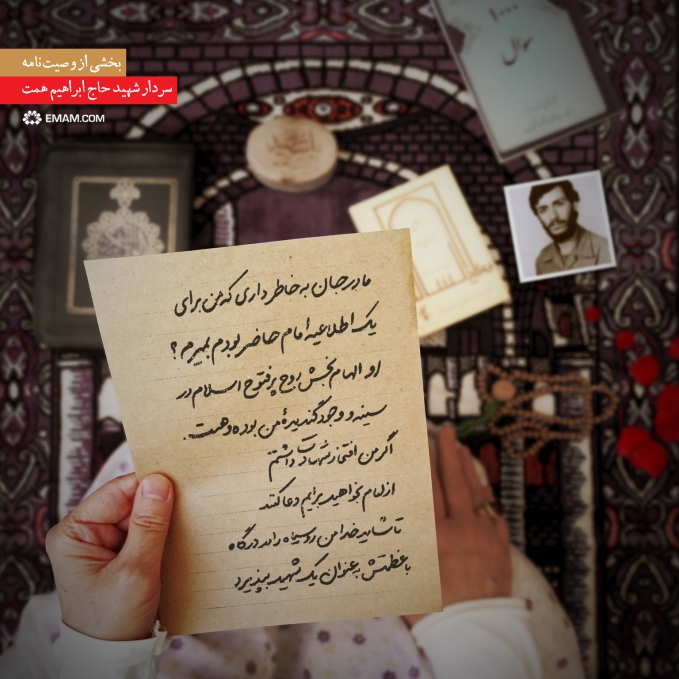 بخشی از وصیت‌نامه
سردار شهید حاج ابراهیم همت
EMAM.COM
۱۰۰۰
سوال
مادرجان به خاطر داری که من برای
یک اطلاعیه امام حاضر بودم بمیرم ؟
او الهام بخش روح پرفتوح اسلام در
سینه و وجود گندیدهٔ من بوده و هست.
اگر من افتخار شهادت داشتم
از امام بخواهید برایم دعا کنند
تا شاید خدا من روسیاه را در درگاه
با عظمتش به عنوان یک شهید بپذیرد